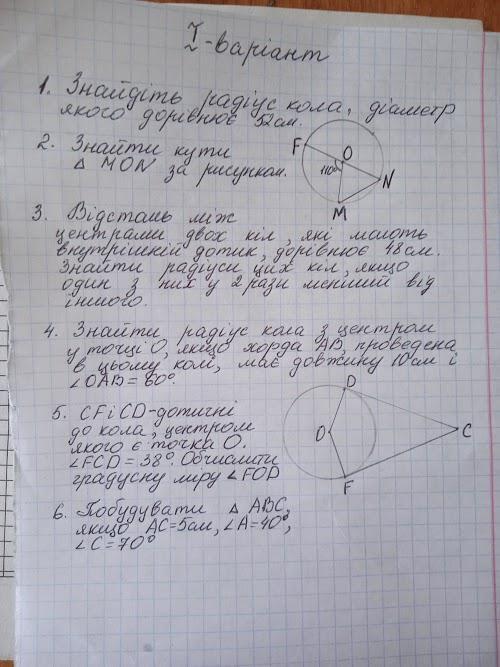 I-варіант
1. Знайдіть радіус кола, діаметр
якого дорівнює 52см.
2. Знайти кути
△ MON за рисунком.
F
O
110°
N
M
3. Відстань між
центрами двох кіл, які мають
внутрішній дотик, дорівнює 48см.
Знайти радіуси цих кіл, якщо
один з них у 2 рази менший від
іншого.
4. Знайти радіус кола з центром
у точці О, якщо хорда АВ, проведена
в цьому колі, має довжину 10см і
∠OAB = 60°.
5. CF і CD-дотичні
до кола, центром
якого є точка О.
∠FCD = 38°. Обчислити
градусну міру ∠FOD
D
O
C
F
6. Побудувати △ ABC,
якщо AC=5см, ∠A=40°,
∠C=70°